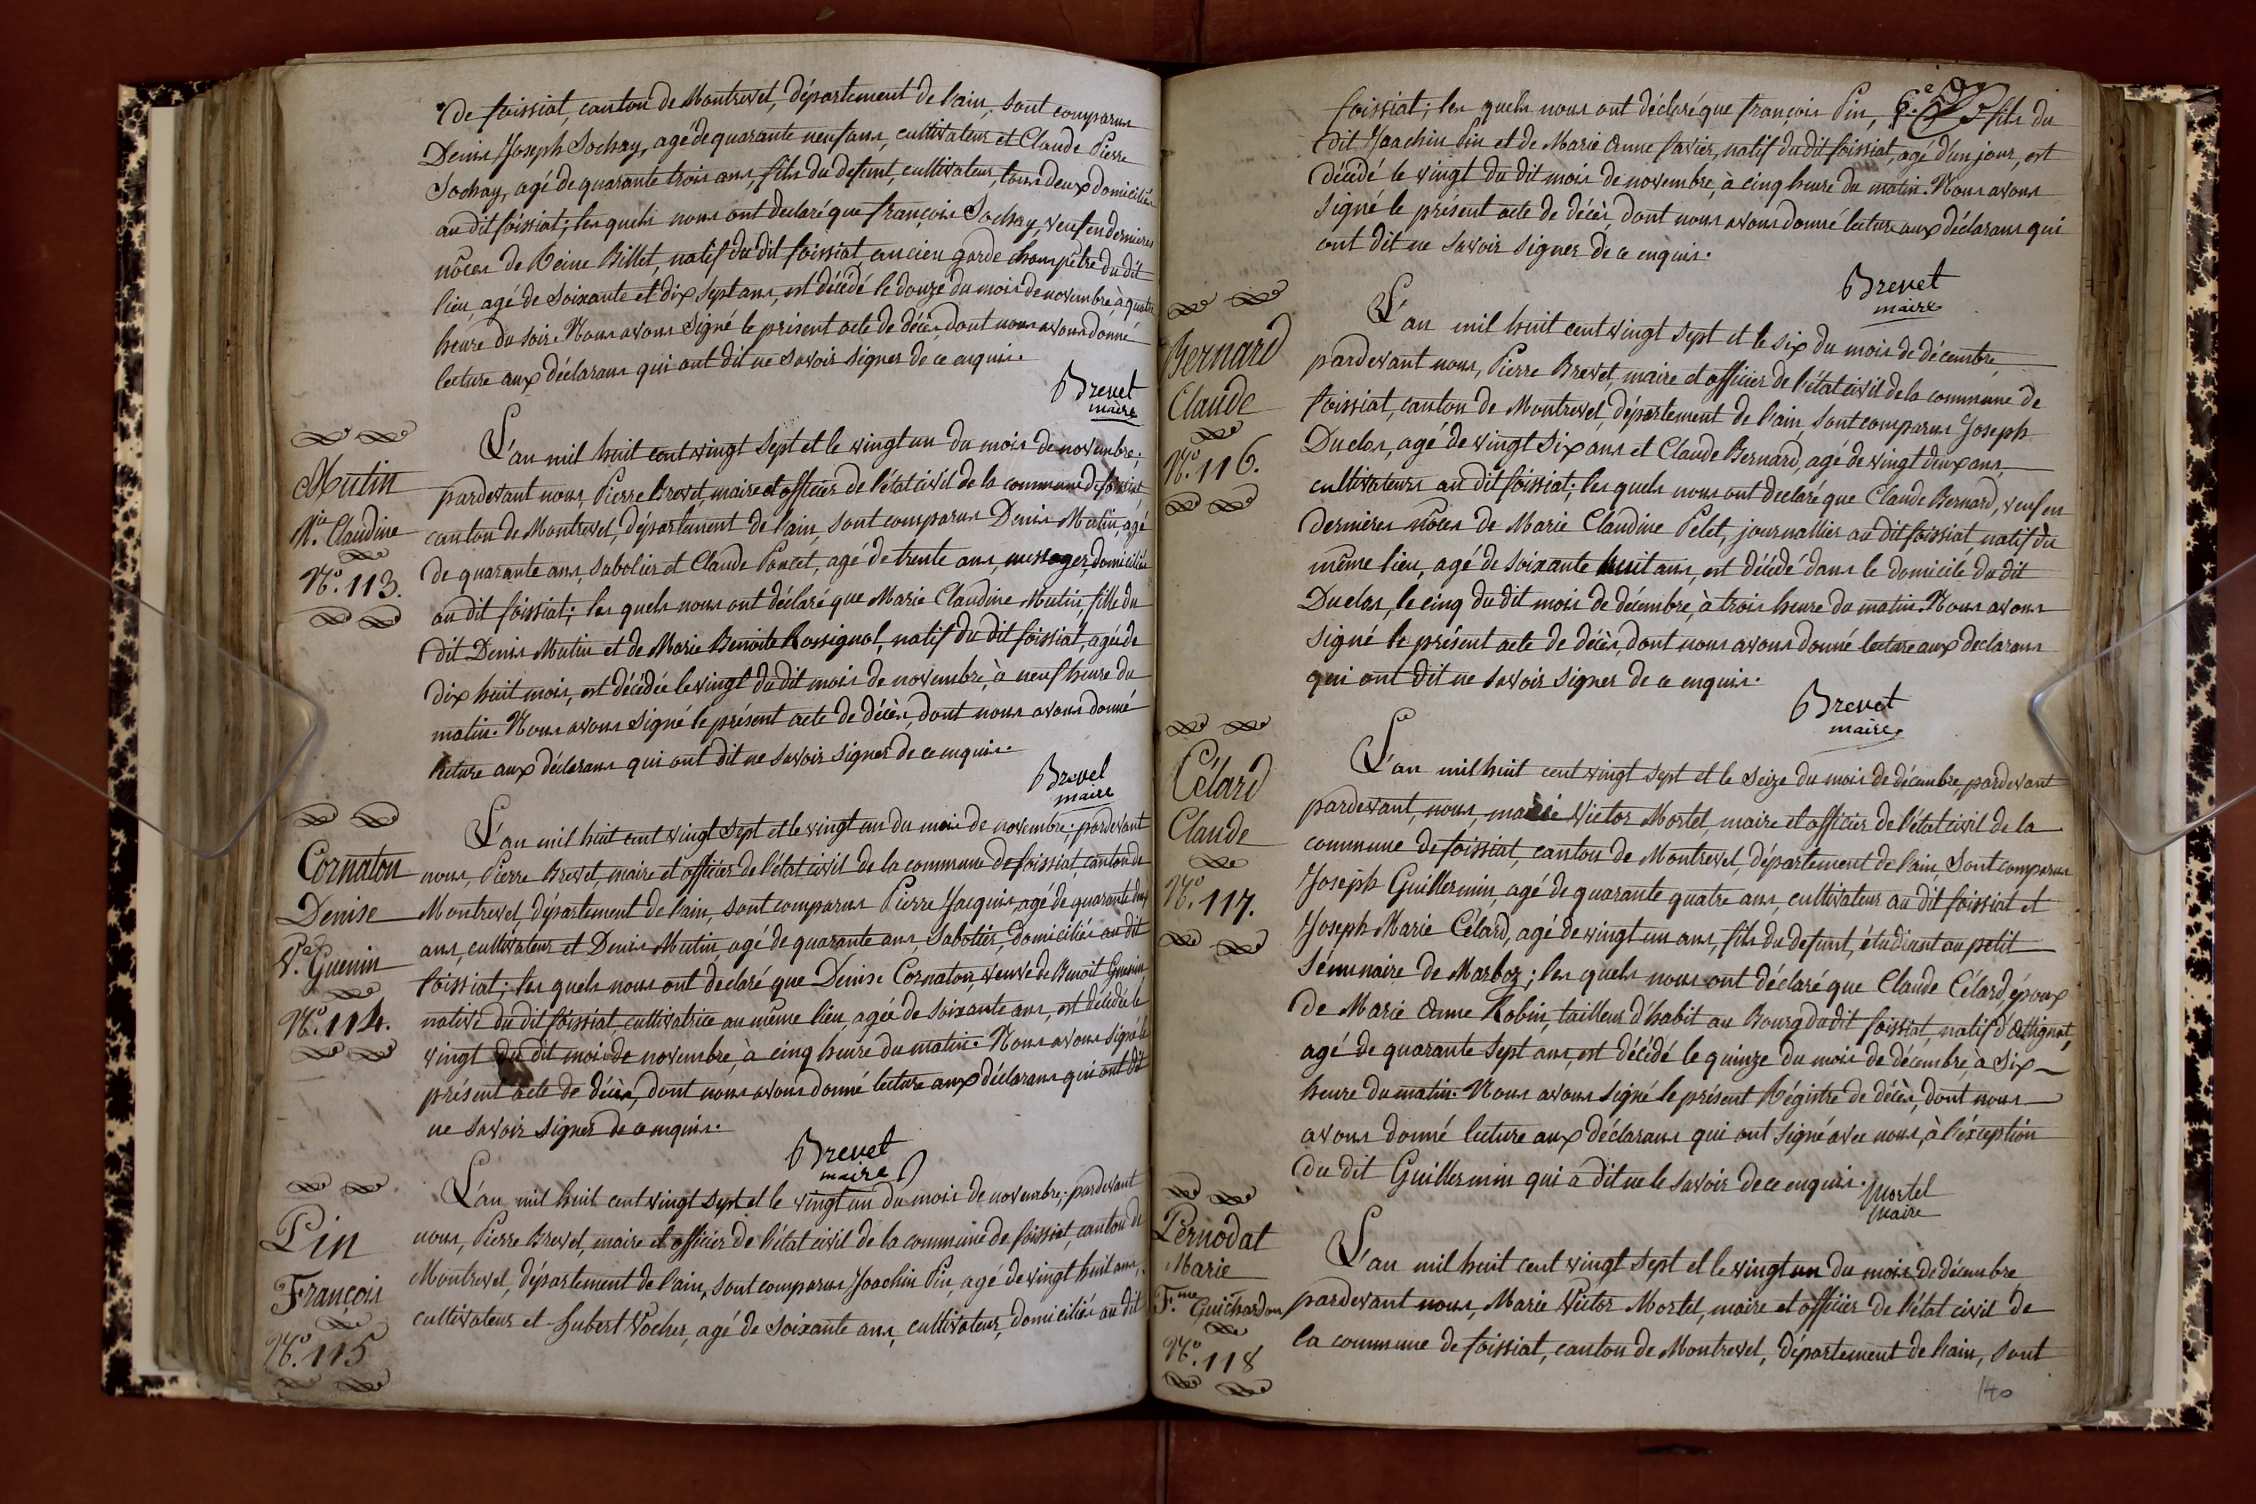 de foissiat, canton de Montrevel, département de l'ain, sont comparus
Denis Joseph Sochay, agé de quarante neuf ans, cultivateur et Claude Pierre
Sochay, agé de quarante trois ans, fils du defunt, cultivateur, tous deux domiciliés
au dit foissiat; les quels nous ont declaré que françois Sochay, veuf en dernieres
nôces de Reine Billet, natif du dit foissiat ancien garde champêtre du dit
lieu, agé de soixante et dix sept ans, est décédé le douze du mois de novembre à quatre
heure du soir. Nous avons signé le présent acte de décès, dont nous avons donné
lecture aux déclarans qui ont dit ne savoir signer de ce enquis.
Brevet
maire
Mutin
M.ie Claudine
N.o 113.
L'an mil huit cent vingt sept et le vingt un du mois de novembre;
pardevant nous, Pierre Brevet, maire et officier de l'état civil de la commune de foissiat
canton de Montrevel, département de l'ain, sont comparus Denis Mutin, agé
de quarante ans, sabotier et Claude Poncet, agé de trente ans, messager, domiciliés
au dit foissiat; les quels nous ont déclaré que Marie Claudine Mutin, fille du
dit Denis Mutin et de Marie Benoite Rossignol, natif du dit foissiat, agée de
dix huit mois, est décédée le vingt du dit mois de novembre, à neuf heure du
matin. Nous avons signé le présent acte de décès, dont nous avons donné
lecture aux déclarans qui ont dit ne savoir signer de ce enquis.
Brevet
maire
Cornaton
Denise
V.e Guenin
N.o 114.
L'an mil huit cent vingt sept et le vingt un du mois de novembre; pardevant
nous, Pierre Brevet, maire et officier de l'état civil de la commune de foissiat, canton de
Montrevel, département de l'ain, sont comparus Pierre Jacquis, agé de quarante
ans, cultivateur et Denis Mutin, agé de quarante ans, sabotier, domiciliés au dit
foissiat; les quels nous ont declaré que Denise Cornaton, veuve de Benoit Guenin
native du dit foissiat, cultivatrice au même lieu, agée de soixante ans, est décédée le
vingt du dit mois de novembre, à cinq heure du matin. Nous avons signé le
présent acte de décès, dont nous avons donné lecture aux déclarans qui ont dit
ne savoir signer de ce enquis.
Brevet
maire
Pin
François
N.o 115
L'an mil huit cent vingt sept et le vingt un du mois de novembre; pardevant
nous, Pierre Brevet, maire et officier de l'état civil de la commune de foissiat, canton de
Montrevel, département de l'ain, sont comparus Joachin Pin, agé de vingt huit ans,
cultivateur et hubert Vocher, agé de soixante ans, cultivateur, domiciliés au dit
foissiat; les quels nous ont déclaré que françois Pin, fils du
dit Joachin Pin et de Marie Anne favier, natif du dit foissiat, agé d'un jour, est
décédé le vingt du dit mois de novembre, à cinq heure du matin. Nous avons
signé le présent acte de décès, dont nous avons donné lecture aux déclarans qui
ont dit ne savoir signer de ce enquis.
Brevet
maire
Bernard
Claude
N.o 116.
L'an mil huit cent vingt sept et le six du mois de décembre,
pardevant nous, Pierre Brevet, maire et officier de l'état civil de la commune de
foissiat, canton de Montrevel, département de l'ain, sont comparus Joseph
Duclos, agé de vingt six ans et Claude Bernard, agé de vingt deux ans,
cultivateurs au dit foissiat; les quels nous ont declaré que Claude Bernard, veuf en
dernieres nôces de Marie Claudine Pelet, journallier au dit foissiat natif du
même lieu, agé de soixante huit ans, est décédé dans le domicile du dit
Duclos, le cinq du dit mois de décembre, à trois heure du matin. Nous avons
signé le présent acte de décès, dont nous avons donné lecture aux declarans
qui ont dit ne savoir signer de ce enquis.
Brevet
maire.
Célard
Claude
N.o 117.
L'an mil huit cent vingt sept et le seize du mois de décembre, pardevant
pardevant, nous, marie Victor Mortel, maire et officier de l'état civil de la
commune de foissiat, canton de Montrevel, département de l'ain, sont comparus
Joseph Guillermin, agé de quarante quatre ans, cultivateur au dit foissiat et
Joseph Marie Célard, agé de vingt un ans, fils du defunt, étudiant au petit
séminaire de Marboz; les quels nous ont déclaré que Claude Célard, époux
de Marie Anne Robin, tailleur d'habit au Bourg du dit foissiat, natif d'Attignat,
agé de quarante sept ans, est décédé le quinze du mois de décembre, à six
heure du matin. Nous avons signé le présent Régistre de décès, dont nous
avons donné lecture aux déclarans qui ont signé avec nous, à l'éxception
du dit Guillermin qui a dit ne le savoir de ce enquis.
Mortel
maire
Pernodat
Marie
F.me Guichardon
N.o 118
L'an mil huit cent vingt sept et le vingt un du mois de décembre
pardevant nous, Marie Victor Mortel, maire et officier de l'état civil de
la commune de foissiat, canton de Montrevel, département de l'ain, sont
140